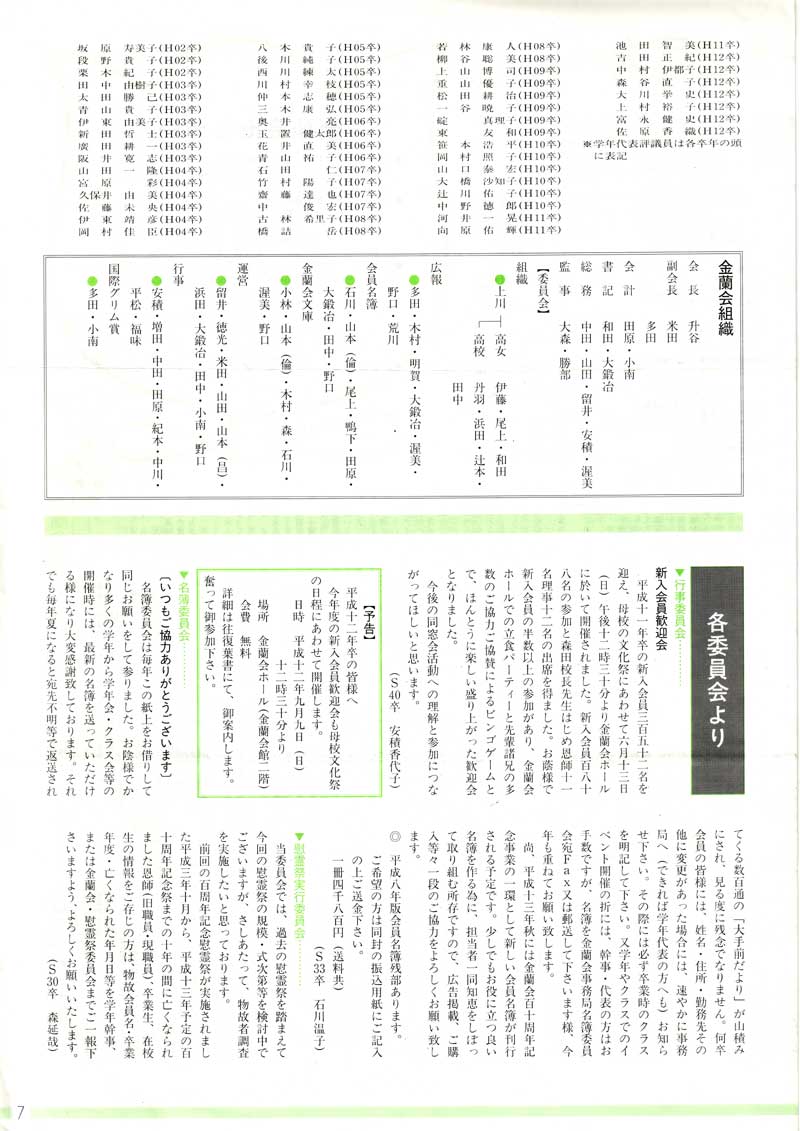 坂原寿美子(H02卒)
段野貴子(H02卒)
栗木紀子(H02卒)
田中由樹子(H03卒)
太田勝己(H03卒)
青山貴子(H03卒)
伊東由美子(H03卒)
新田哲士(H03卒)
廣田耕一(H03卒)
阪井寛志(H03卒)
山田一隆(H04卒)
宮原彩(H04卒)
久保井由美(H04卒)
佐藤未央(H04卒)
伊東靖彦(H04卒)
岡村佳臣(H04卒)
八木貴子(H05卒)
後川純子(H05卒)
西川練太(H05卒)
川村幸枝(H05卒)
仲本志穂(H05卒)
三木康弘(H05卒)
奥井亮(H06卒)
玉置健太郎(H06卒)
花井直美(H06卒)
青山祐子(H06卒)
石田仁(H07卒)
竹村陽子(H07卒)
齋藤達也(H07卒)
中俊宏(H07卒)
古林希里子(H08卒)
橋詰岳(H08卒)
若林康人(H08卒)
柳谷聡美(H08卒)
上山博司(H09卒)
重山優子(H09卒)
松田耕治(H09卒)
一谷暁子(H09卒)
碇真理子(H09卒)
東友和(H09卒)
笹本浩平(H10卒)
岡村照子(H10卒)
山口泰宏(H10卒)
大橋沙知子(H10卒)
辻川佑子(H10卒)
中野徳郎(H10卒)
河井一晃(H11卒)
向原佑輝(H11卒)
池田智美(H11卒)
吉田正紀(H12卒)
中村伊都子(H12卒)
森谷直子(H12卒)
大川挙史(H12卒)
上村裕子(H12卒)
富永健史(H12卒)
佐原香織(H12卒)
※学年代表評議員は各卒年の頭
に表記
金蘭会組織
会長 升谷
副会長 米田
多田
会計 田原・小南
書記 和田・大鍛冶
総務 中田・山田・留井・安積・渥美
監事 大森・勝部
【委員会】
組織
上川
高女 伊藤・尾上・和田
高校 丹羽・浜田・辻本・
田中
広報
多田・木村・明賀・大鍛冶・渥美・
野口・荒川
会員名簿
石川・山本(倫)・尾上・鴨下・田原・
大鍛冶・田中・野口
金蘭会文庫
小林・山本(倫)・木村・森・石川・
渥美・野口
運営
留井・徳光・米田・山田・山本(昌)・
浜田・大鍛冶・田中・小南・野口
行事
安積・増田・中田・田原・紀本・中川・
平松・福味
国際グリム賞
多田・小南
各委員会より
▼行事委員会…………
新入会員歓迎会
平成十一年卒の新入会員三百五十二名を
迎え、母校の文化祭にあわせて六月十三日
(日)午後十二時三十分より金蘭会ホール
に於いて開催されました。新入会員百八十
八名の参加と森田校長先生はじめ恩師十一
名理事十二名の出席を得ました。お蔭様で
新入会員の半数以上の参加があり、金蘭会
ホールでの立食パーティーと先輩諸兄の多
数のご協力ご協賛によるビンゴゲームと
で、ほんとうに楽しい盛り上がった歓迎会
となりました。
今後の同窓会活動への理解と参加につな
がってほしいと思います。
(S40卒 安積香代子)
【予告】
平成十二年卒の皆様へ
今年度の新入会員歓迎会も母校文化祭
の日程にあわせて開催します。
日時 平成十二年九月九日(日)
十二時三十分より
場所 金蘭会ホール(金蘭会館二階)
会費 無料
詳細は往復葉書にて、御案内します。
奮って御参加下さい。
▼名簿委員会…………
〔いつもご協力ありがとうございます〕
名簿委員会は毎年この紙上をお借りして
同じお願いをして参りました。お陰様でか
なり多くの学年から学年会・クラス会等の
開催時には、最新の名簿を送っていただけ
る様になり大変感謝致しております。それ
でも毎年夏になると宛先不明等で返送され
てくる数百通の「大手前だより」が山積み
にされ、見る度に残念でなりません。何卒
会員の皆様には、姓名・住所・勤務先その
他に変更があった場合には、速やかに事務
局へ(できれば学年代表の方へも)お知ら
せ下さい。その際には必ず卒業時のクラス
を明記して下さい。又学年やクラスでのイ
ベント開催の折には、幹事・代表の方はお
手数ですが、名簿を金蘭会事務局名簿委員
会宛Fax又は郵送して下さいます様、今
年も重ねてお願い致します。
尚、平成十三年秋には金蘭会百十周年記
念事業の一環として新しい会員名簿が刊行
される予定です。少しでもお役に立つ良い
名簿を作る為に、担当者一同知恵をしぼっ
て取り組む所存ですので、広告掲載、ご購
入等々一段のご協力をよろしくお願い致し
ます。
◎ 平成八年版会員名簿残部あります。
ご希望の方は同封の振込用紙にご記入
の上ご送金下さい。
一冊四千八百円(送料共)
(S33卒 石川温子)
▼慰霊祭実行委員会…………
当委員会では、過去の慰霊祭を踏まえて
今回の慰霊祭の規模・式次第等を検討中で
ございますが、さしあたって、物故者調査
を実施したいと思っております。
前回の百周年記念慰霊祭が実施されまし
た平成三年十月から、平成十三年予定の百
十周年記念祭までの十年の間に亡くなられ
ました恩師(旧職員・現職員)、卒業生、在校
生の情報をご存じの方は、物故会員名・卒業
年度・亡くなられた年月日等を学年幹事、
または金蘭会・慰霊祭委員会までご一報下
さいますよう、よろしくお願いいたします。
(S30卒 森延哉)
7